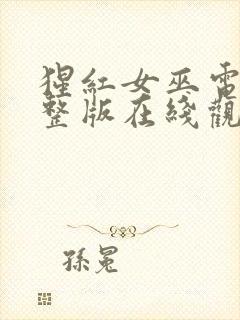 猩紅女巫電
整版在綫觀
孫冕